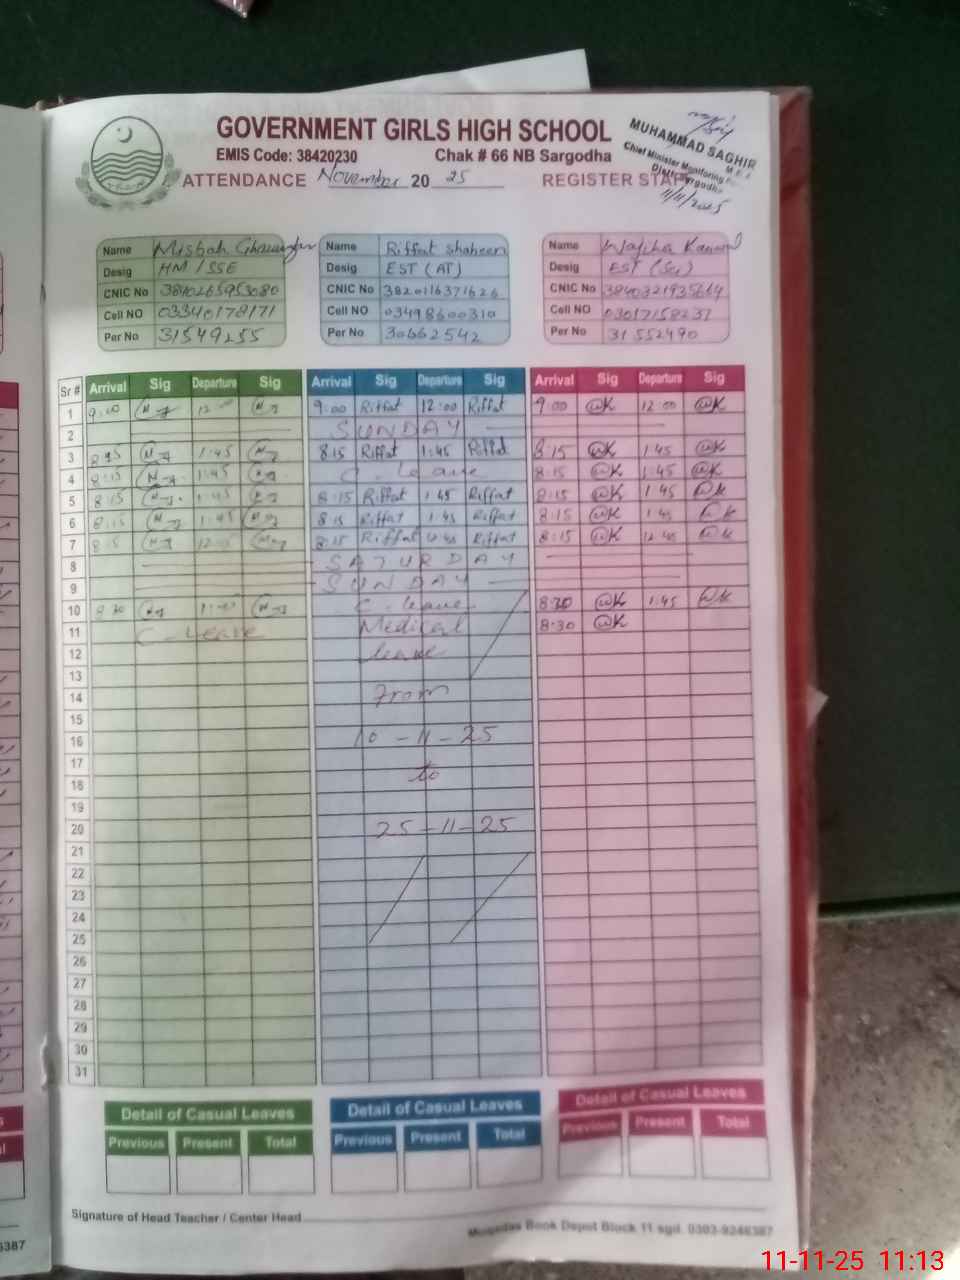 GOVERNMENT GIRLS HIGH SCHOOL
EMIS Code: 38420230 Chak # 66 NB Sargodha
MUHAMMAD SAGHIR
Chief Minister Monitoring
Distt Sargodha
11/11/2025
ATTENDANCE November 20 25 REGISTER STAFF
Name Misbah Name Riffat Shaheen Name Wajiha Kanwal
Desig HM/SSE Desig EST (AT) Desig EST (Sci)
CNIC No 3840265953080 CNIC No 3820116371626 CNIC No 3840321935664
Cell NO 03340178171 Cell NO 03498600310 Cell NO 03017158237
Per No 31549255 Per No 30662542 Per No 31552490
Sr # Arrival Sig Departure Sig Arrival Sig Departure Sig Arrival Sig Departure Sig
1 9:00 12:00 9:00 Riffat 12:00 Riffat 9:00 @K 12:00 @K
2 SUNDAY
3 8:15 1:45 8:15 Riffat 1:45 Riffat 8:15 @K 1:45 @K
4 8:15 1:45 C. leave 8:15 @K 1:45 @K
5 8:15 1:45 8:15 Riffat 1:45 Riffat 8:15 @K 1:45 @K
6 8:15 1:45 8:15 Riffat 1:45 Riffat 8:15 @K 1:45 @K
7 8:15 8:15 Riffat 12:45 Riffat 8:15 @K 12:45 @K
8 SATURDAY
9 SUNDAY
10 8:30 1:45 C. leave 8:30 @K 1:45 @K
11 C-Leave Medical 8:30 @K
12 leave
13
14 From
15
16 10-11-25
17
18 to
19
20 25-11-25
21
22
23
24
25
26
27
28
29
30
31
Detail of Casual Leaves Detail of Casual Leaves Detail of Casual Leaves
Previous Present Total Previous Present Total Previous Present Total
Signature of Head Teacher / Center Head
Muqadas Book Depot Block 11 sgd. 0303-9246387
6387
11-11-25 11:13